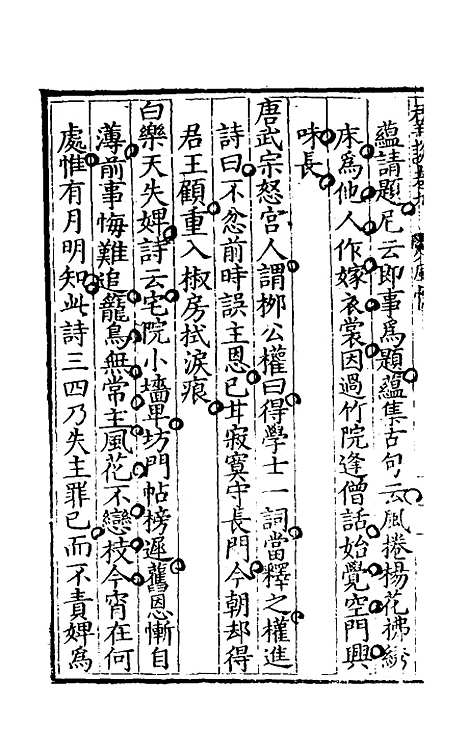 蘊請題尼云即事為題蘊集古句云風捲楊花拂綉
床為他人作嫁衣裳因過竹院逢僧話始覺空門興
味長
唐武宗怒宮人謂柳公權曰得學士一詞當釋之權進
詩曰不忿前時誤主恩已甘寂寞守長門今朝却得
君王顧重入椒房拭淚痕
白樂天失婢詩云宅院小墻卑坊門帖榜遲舊恩慚自
薄前事悔難追籠鳥無常主風花不戀枝今宵在何
處惟有月明知此詩三四乃失主罪已而不責婢為